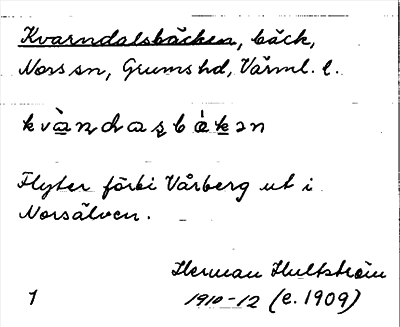 Kvarndalsbäcken, bäck,
Nors sn, Grums hd, Värml. l.
kvàn̥das̥bák̲ən
Flyter förbi Vårberg ut i
Norsälven.
Herman Hultström
1 1910-12 (e. 1909)